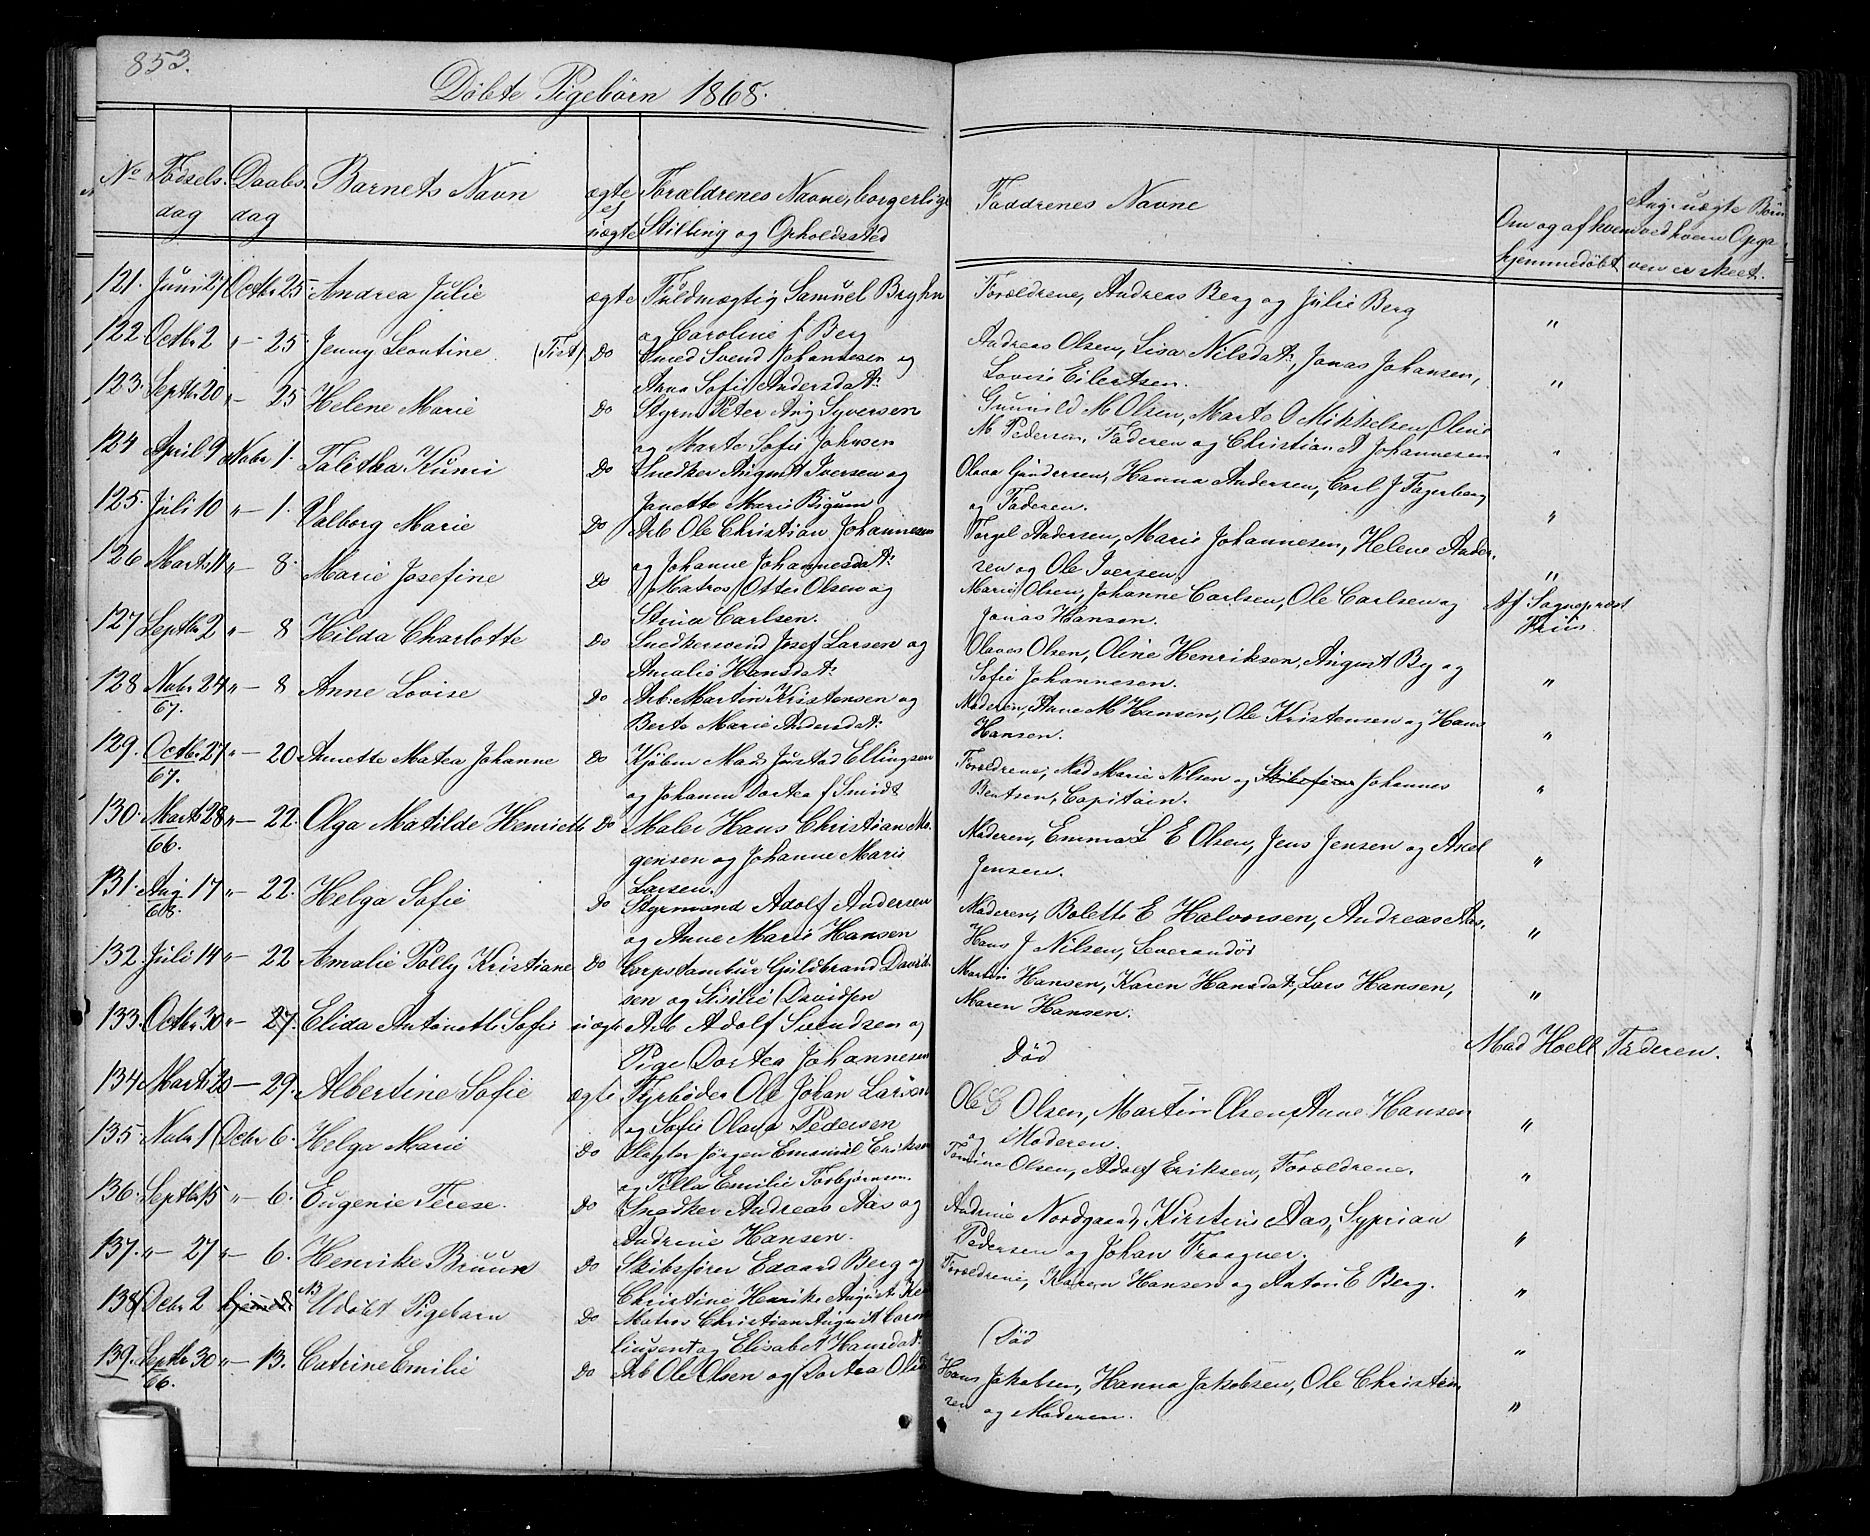 853.
Döbte Pigebörn 1868.
No Fødsels dag Daabs dag Barnets Navn ægte el uægte Forældrenes Navne, borgerlige Stilling og Opholdssted Faddrenes Navne Om og af hvem hjemmedöbt Ang. uægte Börn ved hvem Opgaven er skeet.
121. Juni 27 Octbr 25. Andrea Julie ægte Fuldmægtig Samuel Bryhn Forældrene, Andreas Berg og Julie Berg "
og Caroline f Berg
122. Octbr 2 " - 25. Jenny Leontine. Do Smed Svend Johannesen og Andreas Olsen, Lisa Nilsdat:, Jonas Johansen, "
Anna Sofie Andersdat: Lovise Eilertsen.
123. Septbr 20 " 25 Helene Marie Do Styrm Peter Aug Syversen Gunnild M Olsen, Marte O Mikkelsen, Oline "
og Marte Sofie Johnsen M Pedersen, Faderen og Christian A Johannesen
124 April 9 Nobr 1. Talitha Kumi Do Snedker August Iversen og Olava Gundersen, Hanna Andersen, Carl J Fagerberg "
Janette Marie Bigum og Faderen.
125. Juli 10 " - 1. Valborg Marie Do Arb Ole Christian Johannesen Torgel Andersen, Marie Johannesen, Helene Ander- "
og Johanne Johannesdat: sen og Ole Iversen.
126 Marts 11 " - 8. Marie Josefine Do Matros Otter Olsen og Marie Olsen, Johanne Carlsen, Ole Carlsen og Af Sogneprest
Stina Carlsen. Jonas Hansen. Friis
127 Septbr 2 " - 8 Hilda Charlotte Do Snedkersvend Josef Larsen og Olaves Olsen, Oline Henriksen, August By og "
Amalie Hansdat: Sofie Johannesen.
128 Nobr 24 " - 8 Anne Lovise Do Arb: Martin Kristensen og Moderen, Anne M Hansen, Ole Kristensen og Hans "
67. Berte Marie Andersdat: Hansen.
129. Octbr 27 " - 20 Annette Matea Johanne Do Kjöbm Mads Justad Ellingsen Forældrene, Mad Marie Nilsen og Skibsförer Johannes "
67. og Johanne Dortea f Smidt Bentsen, Capitain.
130. Marts 28 " - 22. Olga Matilde Henriette Do Maler Hans Christian Mo- Moderen, Emma L E Olsen, Jens Jensen og Axel "
66. gensen og Johanne Marie Jensen.
Larsen.
131. Aug 17 " - 22. Helga Sofie Do Styrmand Adolf Andersen Moderen, Bolette E Halvorsen, Andreas Aas, "
68. og Anne Marie Hansen Hans J Nilsen, Leverandör
132. Juli 14 " - 22 Amalie Polly Kristiane Do Corpstambur Guldbrand David- Martin Hansen, Karen Hansdat:, Lars Hansen, "
sen og Sisilie Davidsen Maren Hansen.
133. Octbr 30 " - 27. Elida Antonette Sofie uægte Arb Adolf Svendsen og Död Mad Hoell Faderen.
Pige Dortea Johannesen
134 Marts 20 - 29. Albertine Sofie ægte Fyrböder Ole Johan Larsen Ole G Olsen, Martin Olsen, Anne Hansen "
og Sofie Olava Pedersen og Moderen.
135. Nobr 1 Decbr 6. Helga Marie Do Slagter Jörgen Emanuel Eriksen Tomine Olsen, Adolf Eriksen, Forældrene. "
og Pella Emilie Torbjörnsen.
136. Septbr 15 " - 6. Eugenie Terese. Do Snedker Andreas Aas og Andrine Nordgaard, Kirstine Aas, Syprian "
Andrine Hansen. Pedersen og Johan Fraagner.
137. " - 27 " - 6. Henrike Bruun Do Skibsförer Edvard Berg og Forældrene, Karen Hansen og Anton E Berg. "
Christine Henrike August
138 Decbr 2 hjemmed: NB Udöbt Pigebarn Do Matros Christian August Död "
og Elisabet Hansdat:
139. Septbr 30 " - 13. Catrine Emilie Do Arb Ole Olsen og Dortea Olsen Hans Jakobsen, Hanna Jakobsen, Ole Christen- "
66. sen og Moderen.